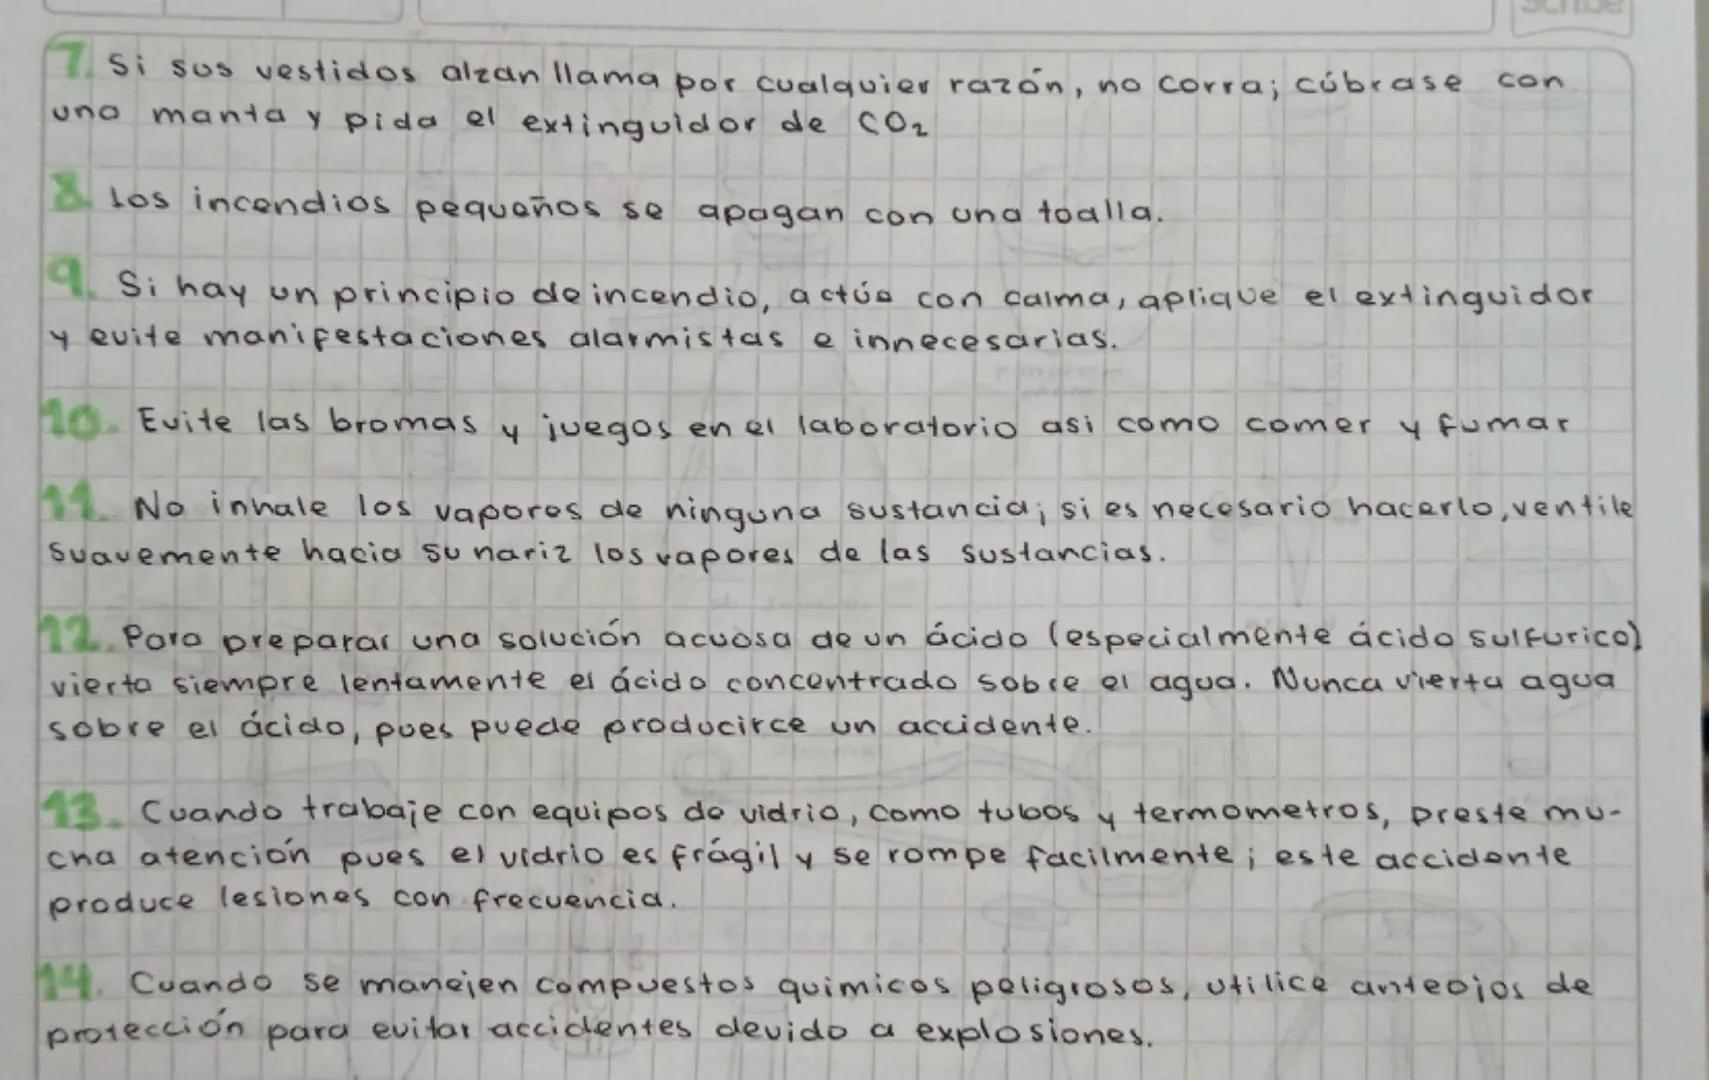 Scribe
7. Si sus vestidos alzan llama por cualquier razón, no corra; cúbrase con
una manta y pida el extinguidor de CO₂
8. Los incendios pequeños se apagan con una toalla.
9. Si hay un principio de incendio, actúe con calma, aplique el extinguidor
y evite manifestaciones alarmistas e innecesarias.
10. Evite las bromas y juegos en el laboratorio asi como comer y fumar
11. No inhale los vapores de ninguna sustancia; si es necesario hacerlo, ventile
suavemente hacia su nariz los vapores de las sustancias.
12. Para preparar una solución acuosa de un ácido (especialmente ácido sulfurico)
vierta siempre lentamente el ácido concentrado sobre el agua. Nunca vierta agua
sobre el ácido, pues puede producirce un accidente.
13. Cuando trabaje con equipos de vidrio, como tubos y termometros, preste mu-
cha atención pues el vidrio es frágil y se rompe facilmente; este accidente
produce lesiones con frecuencia.
14. Cuando se manejen compuestos quimicos peligrosos, utilice anteojos de
protección para evitar accidentes devido a explosiones.